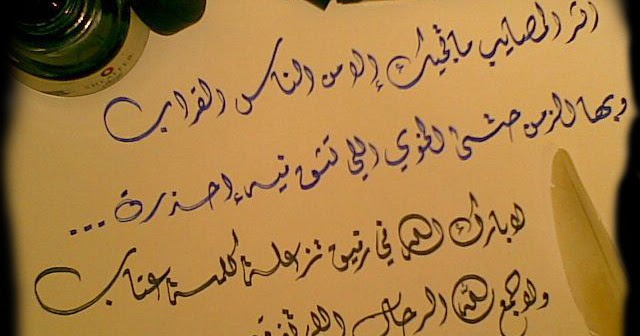 اثر المصايب ماتجيك إلا من الناس القراب
وبها الزمن حتى الخوي اللي تثق فيه إحذرة ...
لا بارك الله في رفيق تزعله كلمة عتاب
ولا جمع الله الرجال